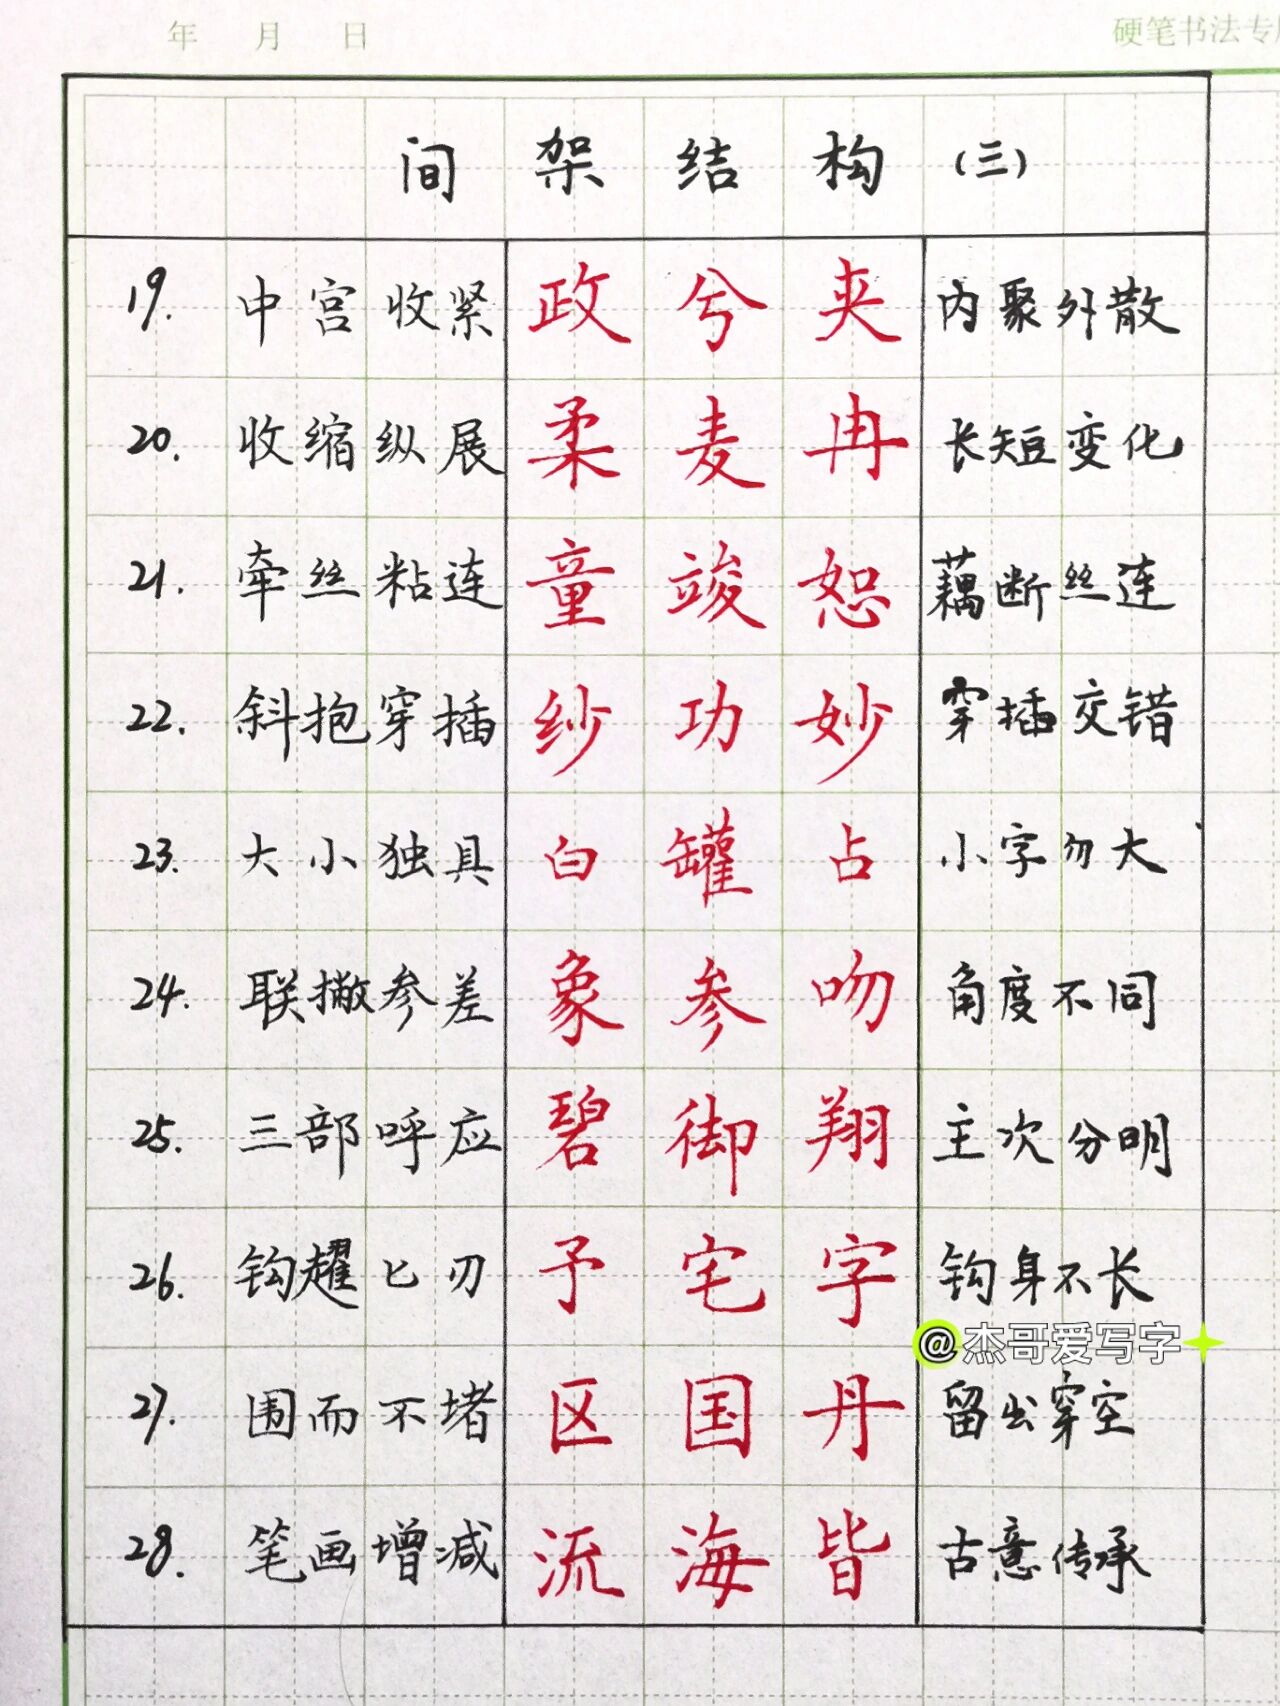 年 月 日 硬笔书法专
间架结构(三)
19. 中宫收紧 政 兮 夹 内聚外散
20. 收缩纵展 柔 麦 冉 长短变化
21. 牵丝粘连 童 竣 恕 藕断丝连
22. 斜抱穿插 纱 功 妙 穿插交错
23. 大小独具 白 罐 占 小字勿大
24. 联撇参差 象 参 吻 角度不同
25. 三部呼应 碧 御 翔 主次分明
26. 钩趯匕刃 予 宅 字 钩身不长
@杰哥爱写字
27. 围而不堵 区 国 丹 留出穿空
28. 笔画增减 流 海 皆 古意传承